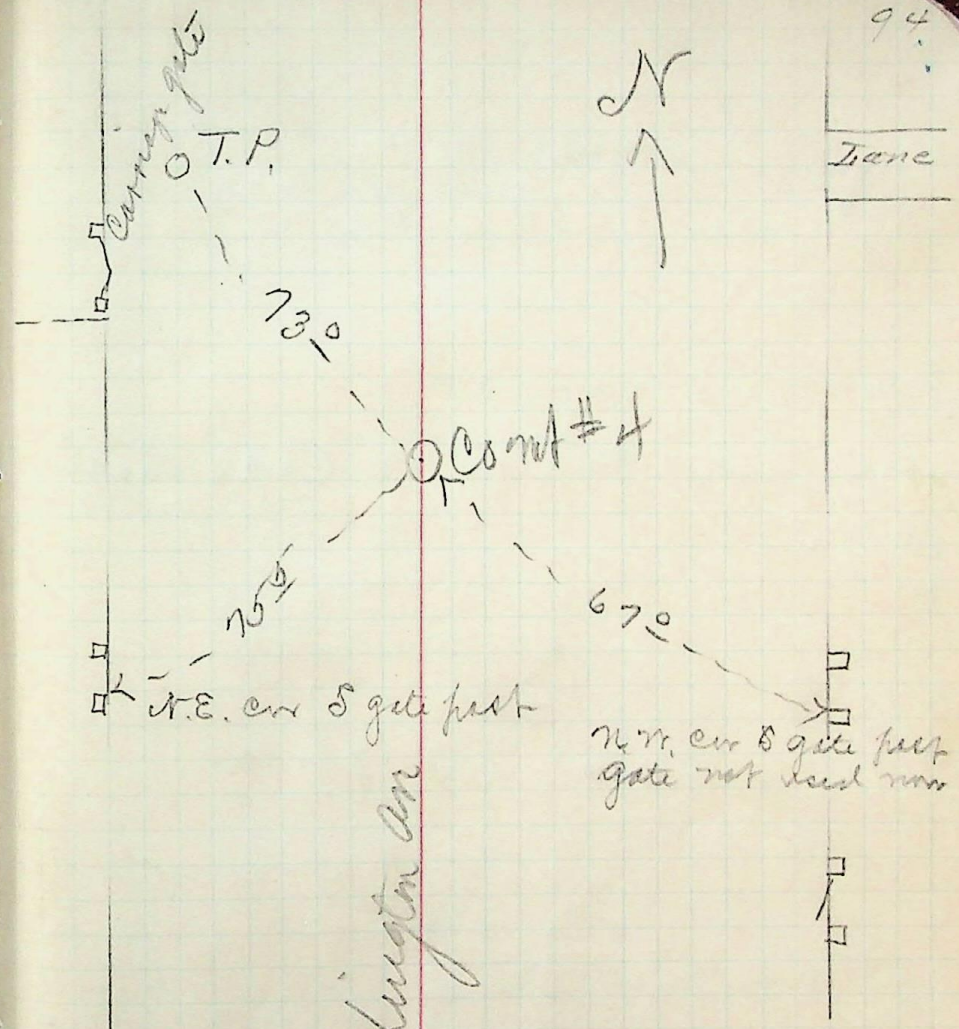 94
Carriage gate
T.P.
N
Lane
73.0
Co mt #4
75 5
67 0
N.E. cor S gate post
N.W. cor S gate post
gate not used now
lington av